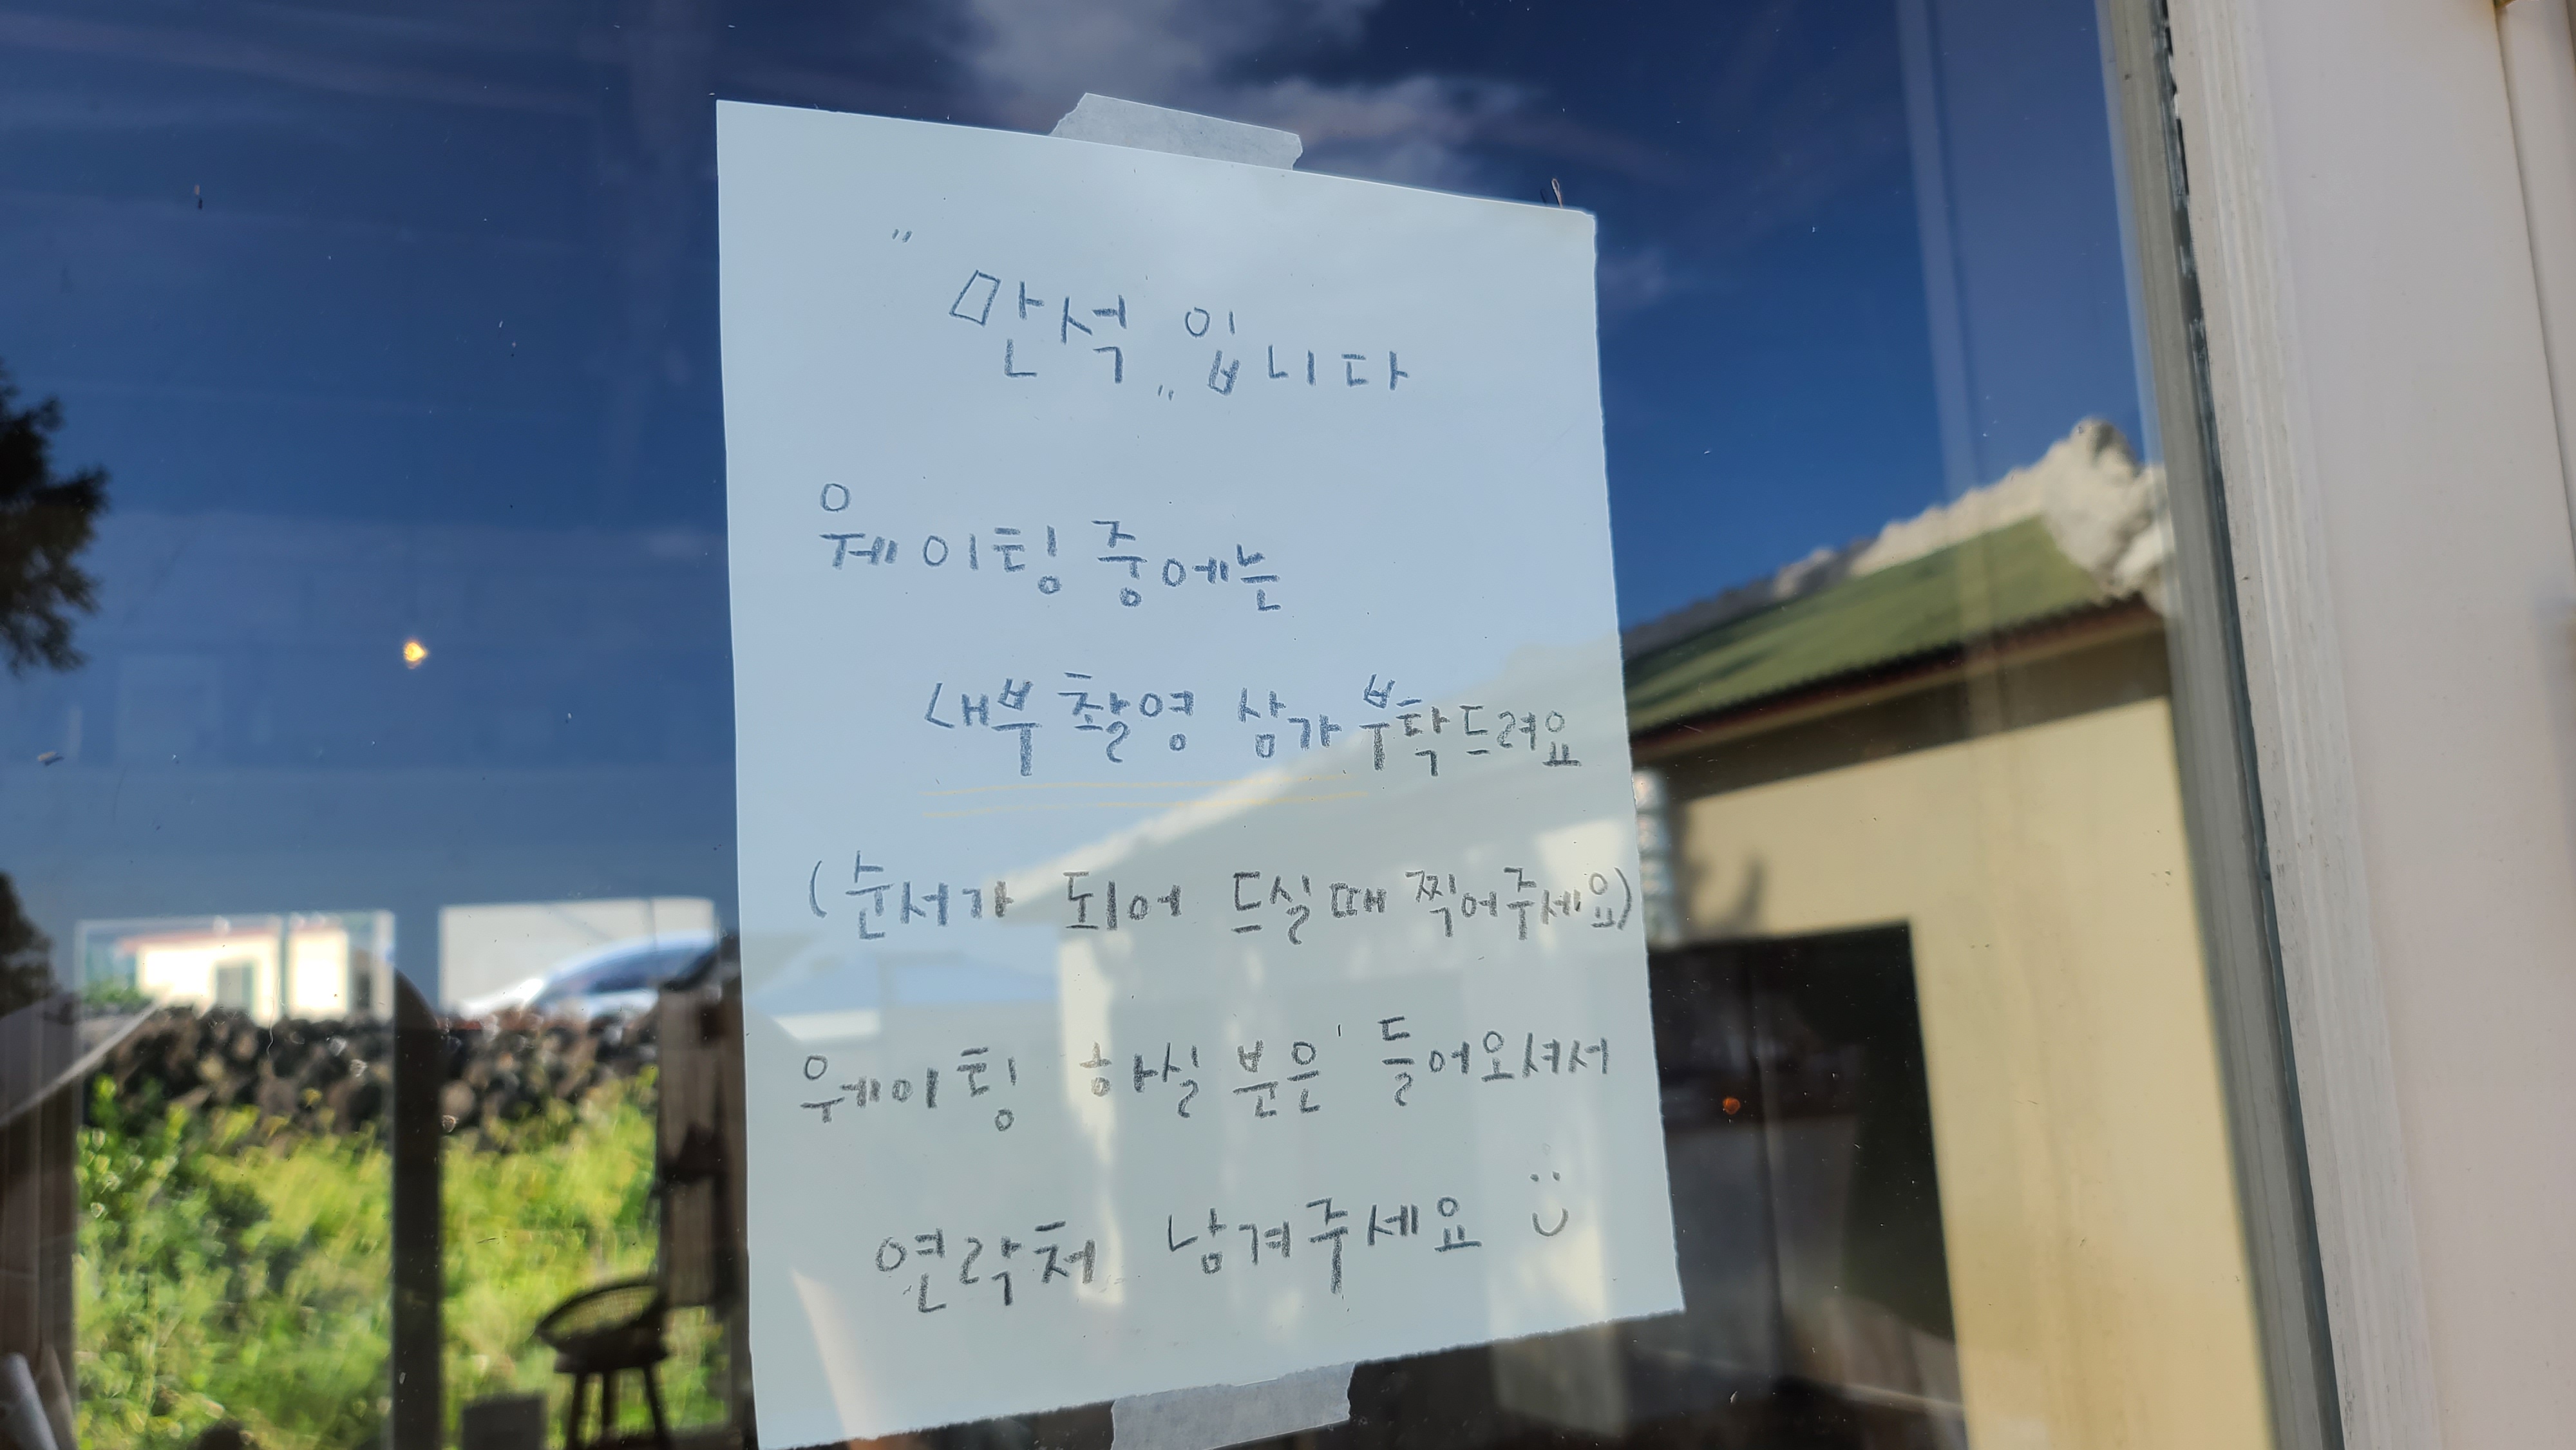 "만석" 입니다
웨이팅 중에는
내부 촬영 삼가 부탁드려요
(순서가 되어 드실때 찍어주세요)
웨이팅 하실 분은 들어오셔서
연락처 남겨주세요 :)